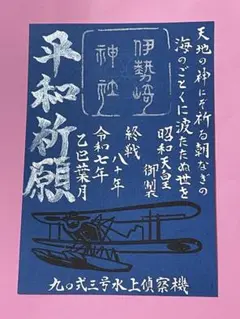 天地の神にぞ祈る朝なぎの
海のごとくに波たたぬ世を
昭和天皇
御製
伊勢崎
神社
終戦
八十年
令和七年
乙巳葉月
平和祈願
九〇弐三号水上偵察機